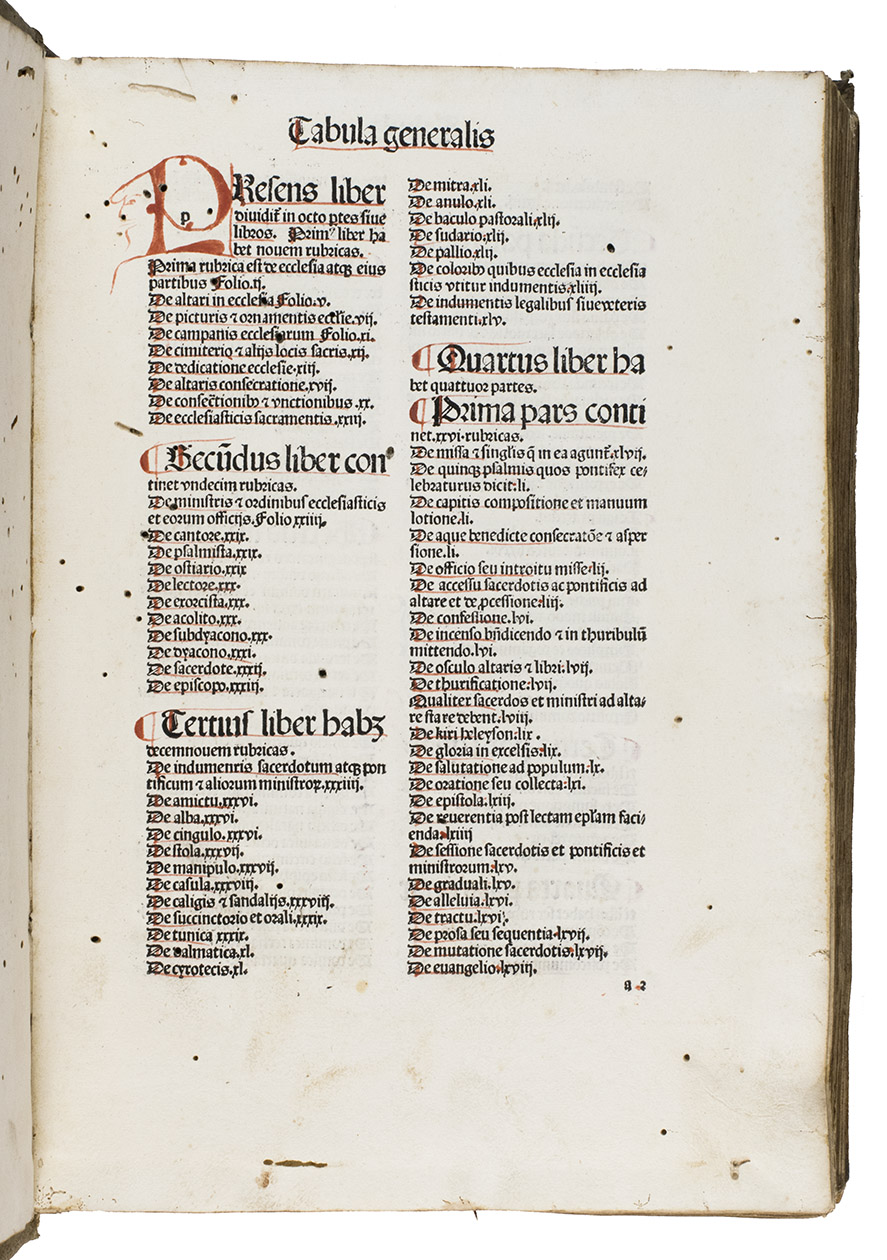 Tabula generalis
PResens liber
diuidit̃ in octo ꝑtes siue
libros. Primꝰ liber ha
bet nouem rubricas.
Prima rubrica est de ecclesia atqꝫ eius
partibus Folio.ij.
De altari in ecclesia Folio.v.
De picturis ⁊ ornamentis ecclĩe.vij.
De campanis ecclesiarum Folio.xi.
De cimiterio ⁊ alijs locis sacris.xij.
De dedicatione ecclesie.xiij.
De altaris consecratione.xvij.
De consec̃tionibꝰ ⁊ vnctionibus.xx.
De ecclesiasticis sacramentis.xxiij.
Secũdus liber con
tinet vndecim rubricas.
De ministris ⁊ ordinibus ecclesiasticis
et eorum officijs.Folio xxiiij.
De cantore.xxix.
De psalmista.xxix.
De ostiario.xxix
De lectore.xxx.
De exorcista.xxx.
De acolito.xxx.
De subdyacono.xxx.
De dyacono.xxxi.
De sacerdote.xxxij.
De episcopo.xxxiij.
Tertius liber habꝫ
decemnouem rubricas.
De indumenris sacerdotum atqꝫ pon
tificum ⁊ aliorum ministroꝝ.xxxiiij.
De amictu.xxxvi.
De alba.xxxvi.
De cingulo.xxxvi.
De stola.xxxvij.
De manipulo.xxxvij.
De casula.xxxviij.
De caligis ⁊ sandalijs.xxxviij.
De succinctorio et orali.xxxix.
De tunica xxxix.
De dalmatica.xl.
De cyrotecis.xl.
De mitra.xli.
De anulo.xli.
De baculo pastorali.xlij.
De sudario.xlij.
De pallio.xlij.
De coloribꝰ quibus ecclesia in ecclesia
sticis vtitur indumentis.xliiij.
De indumentis legalibus siue veteris
testamenti.xlv.
Quartus liber ha
bet quattuor partes.
Prima pars conti
net.xxvi.rubricas.
De missa ⁊ singl̃is q̃ in ea agunt̃.xlvij.
De quinqꝫ psalmis quos pontifex ce⸗
lebraturus dicit.li.
De capitis compositione et manuum
lotione.li.
De aque benedicte consecratõe ⁊ asper
sione.li.
De officio seu introitu misse.lij.
De accessu sacerdotis ac pontificis ad
altare et de ꝓcessione.liij.
De confessione.lvi.
De incenso bñdicendo ⁊ in thuribulũ
mittendo.lvi.
De osculo altaris ⁊ libri.lvij.
De thurificatione.lvij.
Qualiter sacerdos et ministri ad alta⸗
re stare debent.lviij.
De kiri heleyson.lix.
De gloria in excelsis.lix.
De salutatione ad populum.lx.
De oratione seu collecta.lxi.
De epistola.lxiij.
De reuerentia post lectam epl̃am faci⸗
enda.lxiiij
De sessione sacerdotis et pontificis et
ministrorum.lxv.
De graduali.lxv.
De alleluia.lxvi.
De tractu.lxvi.
De prosa seu sequentia.lxvij.
De mutatione sacerdotis.lxvij.
De euangelio.lxviij.
a 2